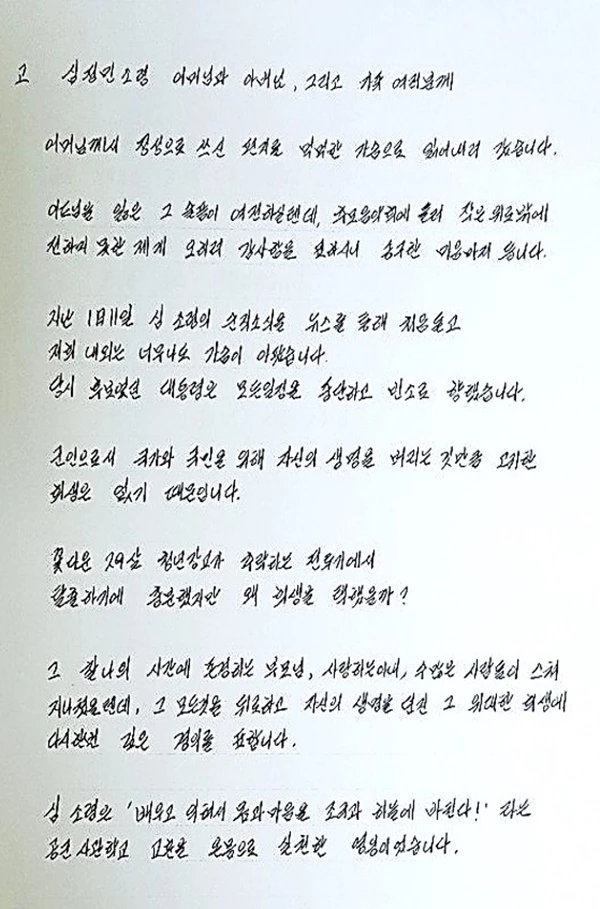 고 심정민소령 어머님과 아버님, 그리고 가족 여러분께
어머님께서 정성으로 쓰신 편지를 먹먹한 가슴으로 읽어내려 갔습니다.
아드님을 잃은 그 슬픔이 여전하실텐데, 추모음악회에 들러 작은 위로밖에
전하지 못한 제게 오히려 감사함을 보내시니 송구한 마음마저 듭니다.
지난 1月11일 심 소령의 순직소식을 뉴스를 통해 처음듣고
저희 내외는 너무나도 가슴이 아팠습니다.
당시 후보였던 대통령은 모든일정을 중단하고 빈소로 향했습니다.
군인으로서 국가와 국민을 위해 자신의 생명을 버리는 것만큼 고귀한
희생은 없기 때문입니다.
꽃다운 29살 청년장교가 추락하는 전투기에서
탈출하기에 충분했지만 왜 희생을 택했을까?
그 찰나의 시간에 존경하는 부모님, 사랑하는아내, 수많은 사람들이 스쳐
지나쳤을텐데, 그 모든것을 뒤로하고 자신의 생명을 던진 그 위대한 희생에
다시한번 깊은 경의를 표합니다.
심 소령은 '배우고 익혀서 몸과마음을 조국과 하늘에 바친다!' 라는
공군 사관학교 교훈을 온몸으로 실천한 영웅이었습니다.